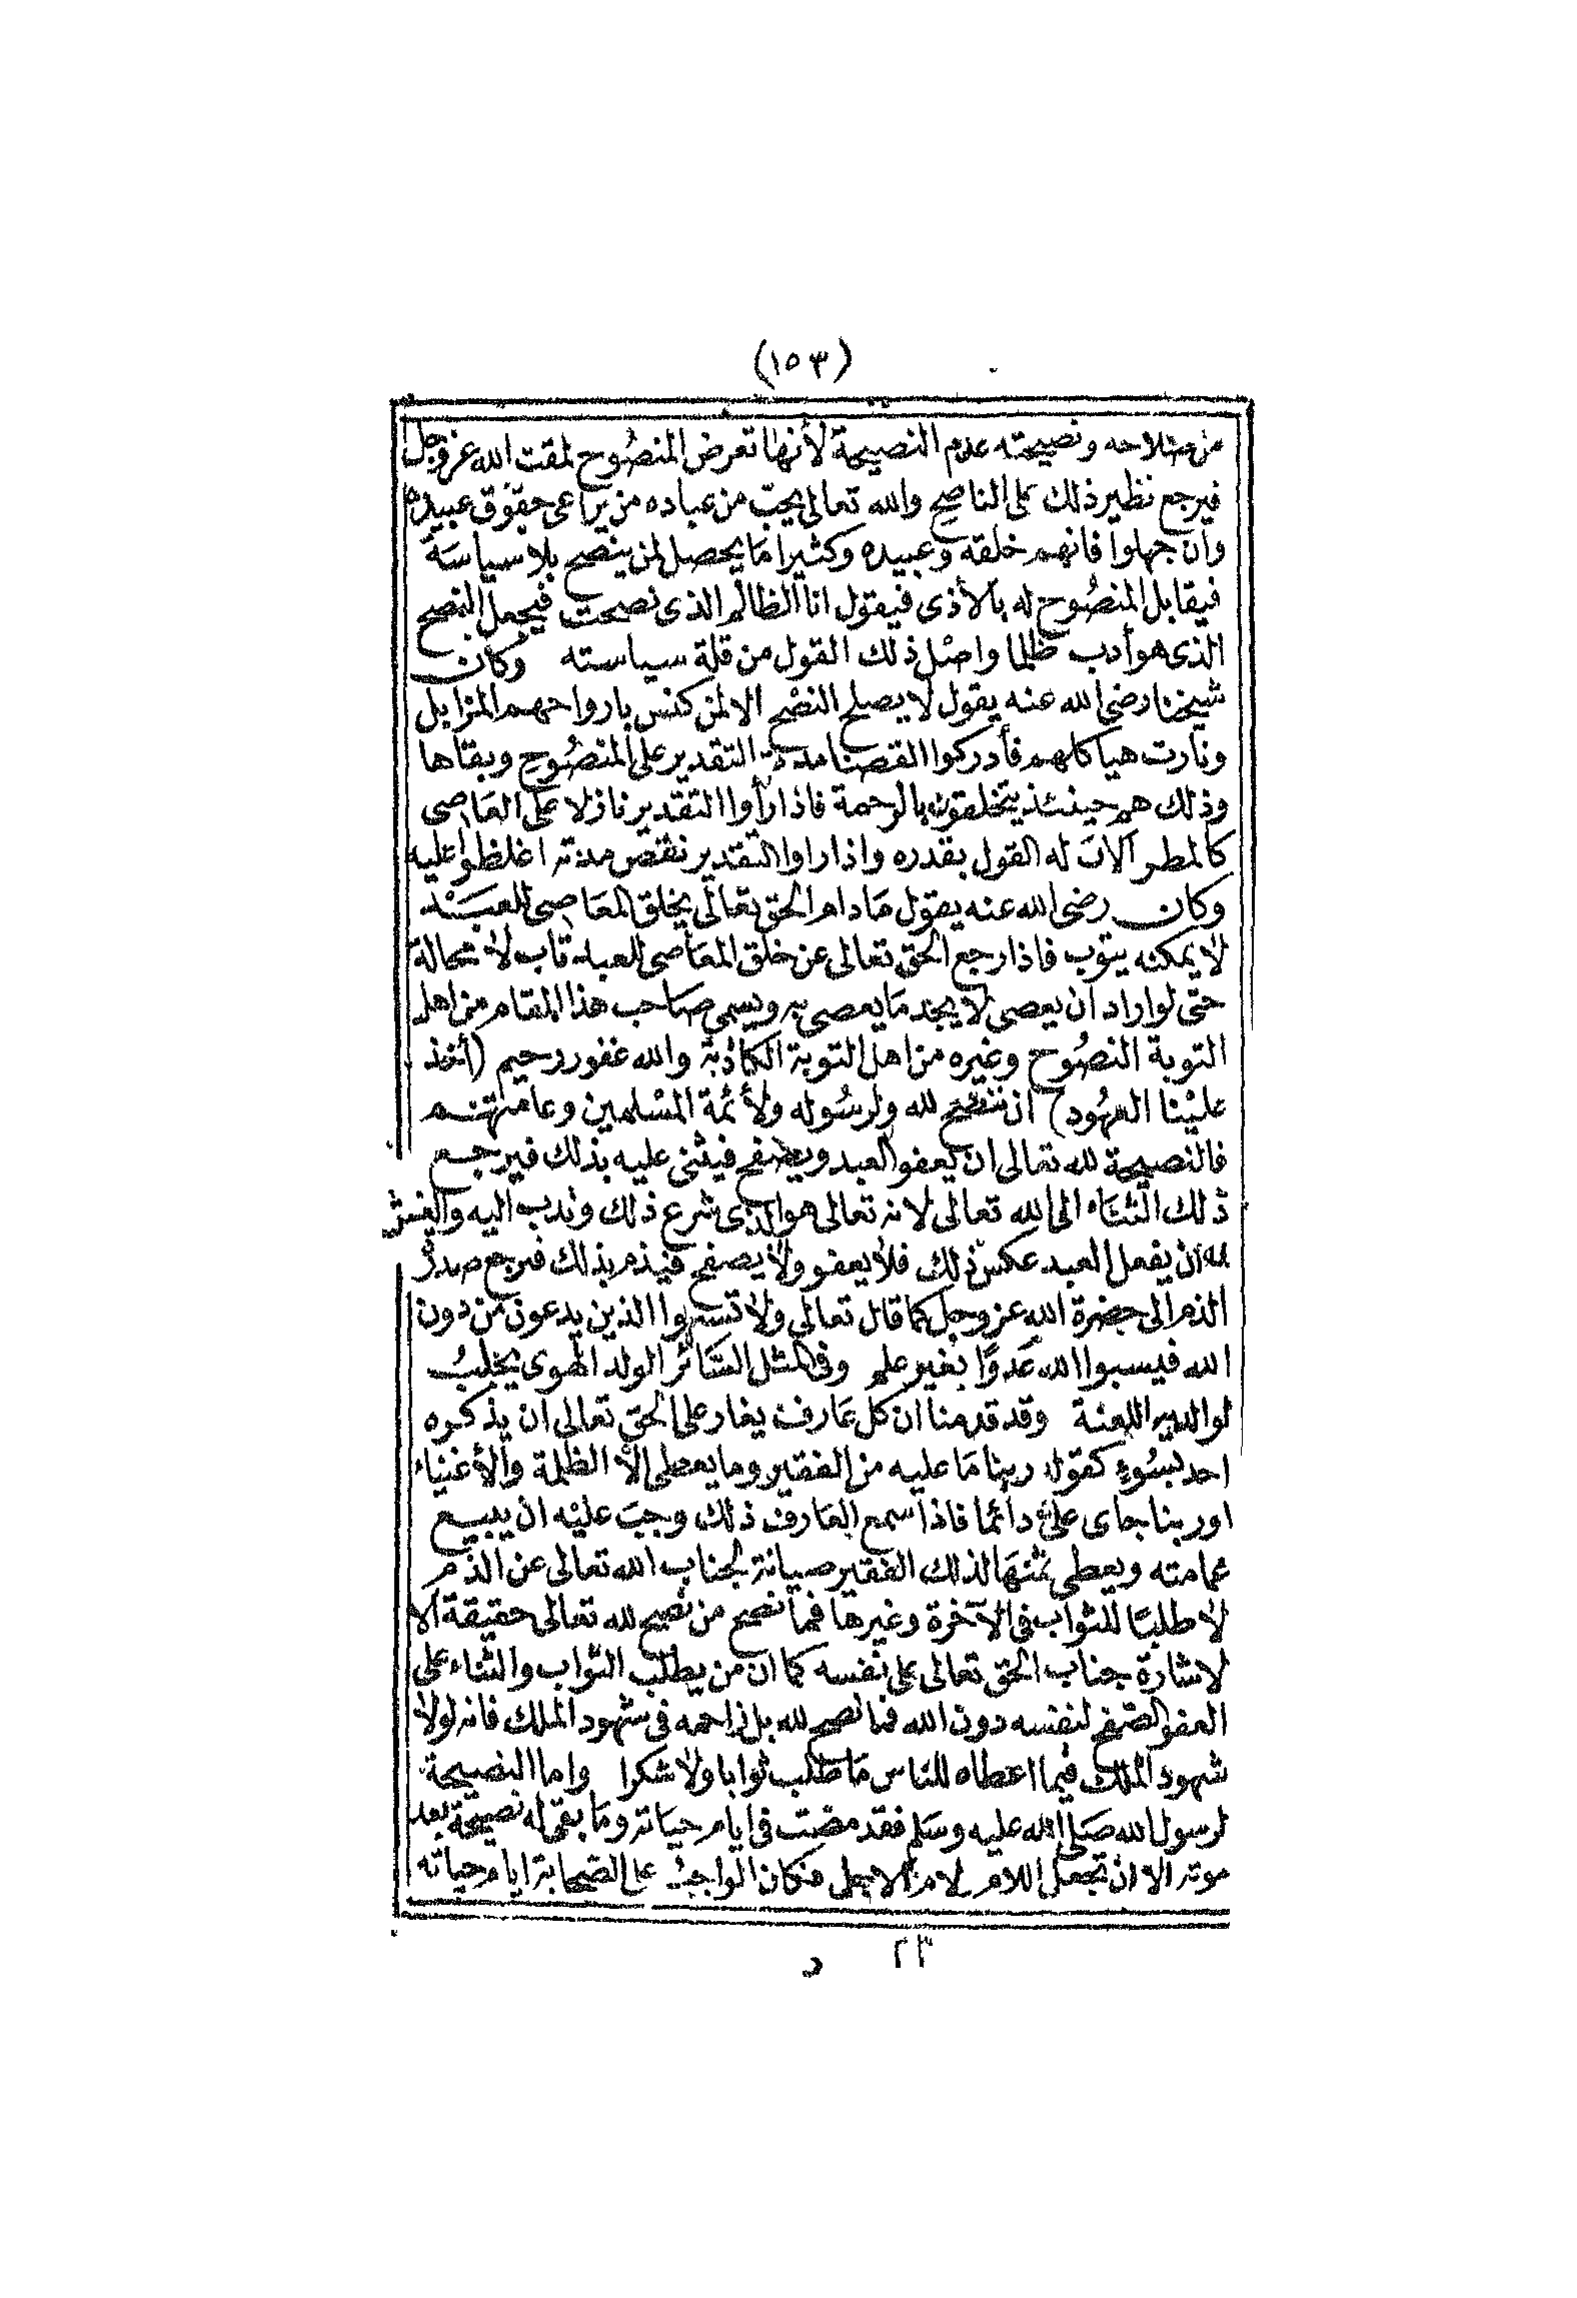 (١٥٣)
من صلاحه ونصيحته عدم النصيحة لأنها تعرض المنصوح لمقت الله عز وجل
فيرجع نظير ذلك على الناصح والله تعالى يحب من عباده من يراعى حقوق عبيده
وان جهلوا فانهم خلقه وعبيده وكثيرا ما يحصل لمن ينصح بلا سياسة
فيقابل المنصوح له بالأذى فيقول انا الظالم الذى نصحت فيجعل النصح
الذى هو أدب ظلما واصل ذلك القول من قلة سياسته وكان
شيخنا رضى الله عنه يقول لا يصلح النصح الا لمن كنس بارواحهم المزابل
ونارت هياكلهم فأدركوا انقضا مدة التقدير على المنصوح وبقاها
وذلك هم حينئذ يتخلقون بالرحمة فاذا رأوا التقدير نازلا على العاصى
كالمطر آلان له القول بقدره واذا راوا التقدير نقص مدته اغلظوا عليه
وكان رضى الله عنه يقول مادام الحق تعالى يخلق المعاصى للعبد
لا يمكنه يتوب فاذا رجع الحق تعالى عن خلق المعاصى للعبد تاب لا محالة
حتى لو اراد ان يعصى لا يجد ما يعصى به ويسمى صاحب هذا المقام من اهل
التوبة النصوح وغيره من اهل التوبة الكاذبة والله غفور رحيم (أخذ
علينا العهود) ان ننصح لله ولرسوله ولأئمة المسلمين وعامتهم
فالنصيحة لله تعالى ان يعفو العبد ويصفح فيثنى عليه بذلك فيرجع
ذلك الثناء الى الله تعالى لانه تعالى هو الذى شرع ذلك وندب اليه والغش
له ان يفعل العبد عكس ذلك فلا يعفو ولا يصفح فيذم بذلك فيرجع صدر
الذم الى حضرة الله عز وجل كما قال تعالى ولا تسبوا الذين يدعون من دون
الله فيسبوا الله عدوا بغير علم وفى المثل السائر الولد الهوى يجلب
لوالديه اللعنة وقد قدمنا ان كل عارف يغار على الحق تعالى ان يذكره
احد بسوء كقوله ربنا ما عليه من الفقير وما يعطى الا الظلمة والأغنياء
او ربنا جاى علىّ دائما فاذا سمع العارف ذلك وجب عليه ان يبيع
عمامته ويعطى ثمنها لذلك الفقير صيانة لجناب الله تعالى عن الذم
لا طلبا للثواب فى الآخرة وغيرها فما نصح من نصح لله تعالى حقيقة الا
لاشارة جناب الحق تعالى على نفسه كما ان من يطلب الثواب والثناء على
العفو الصفح لنفسه دون الله فما نصح لله بل زاحمه فى شهود الملك فانه لولا
شهود الملك فيما اعطاه للناس ما طلب ثوابا ولا شكرا واما النصيحة
لرسول الله صلى الله عليه وسلم فقد مضت فى ايام حياته وما بقى له نصيحة بعد
موته الا ان تجعل اللام لام الاجل فكان الواجب على الصحابة ايام حياته
٢٣ د